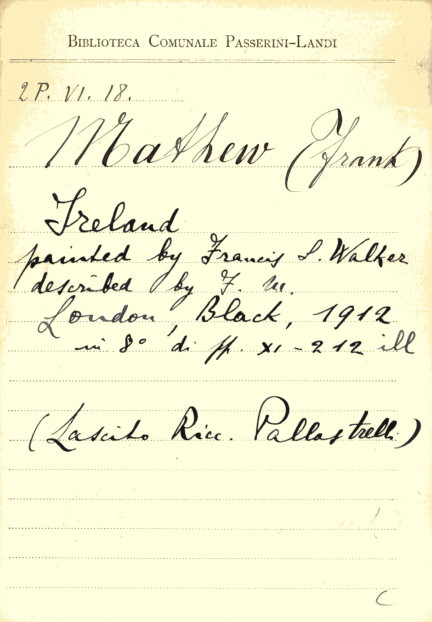 BIBLIOTECA COMUNALE PASSERINI-LANDI
2 P. VI. 18.
Mathew (Frank)
Ireland
painted by Francis S. Walker
described by F. M.
London, Black, 1912
in 8° di pp. XI-212 ill
(Lascito Ricc. Pallastrelli)